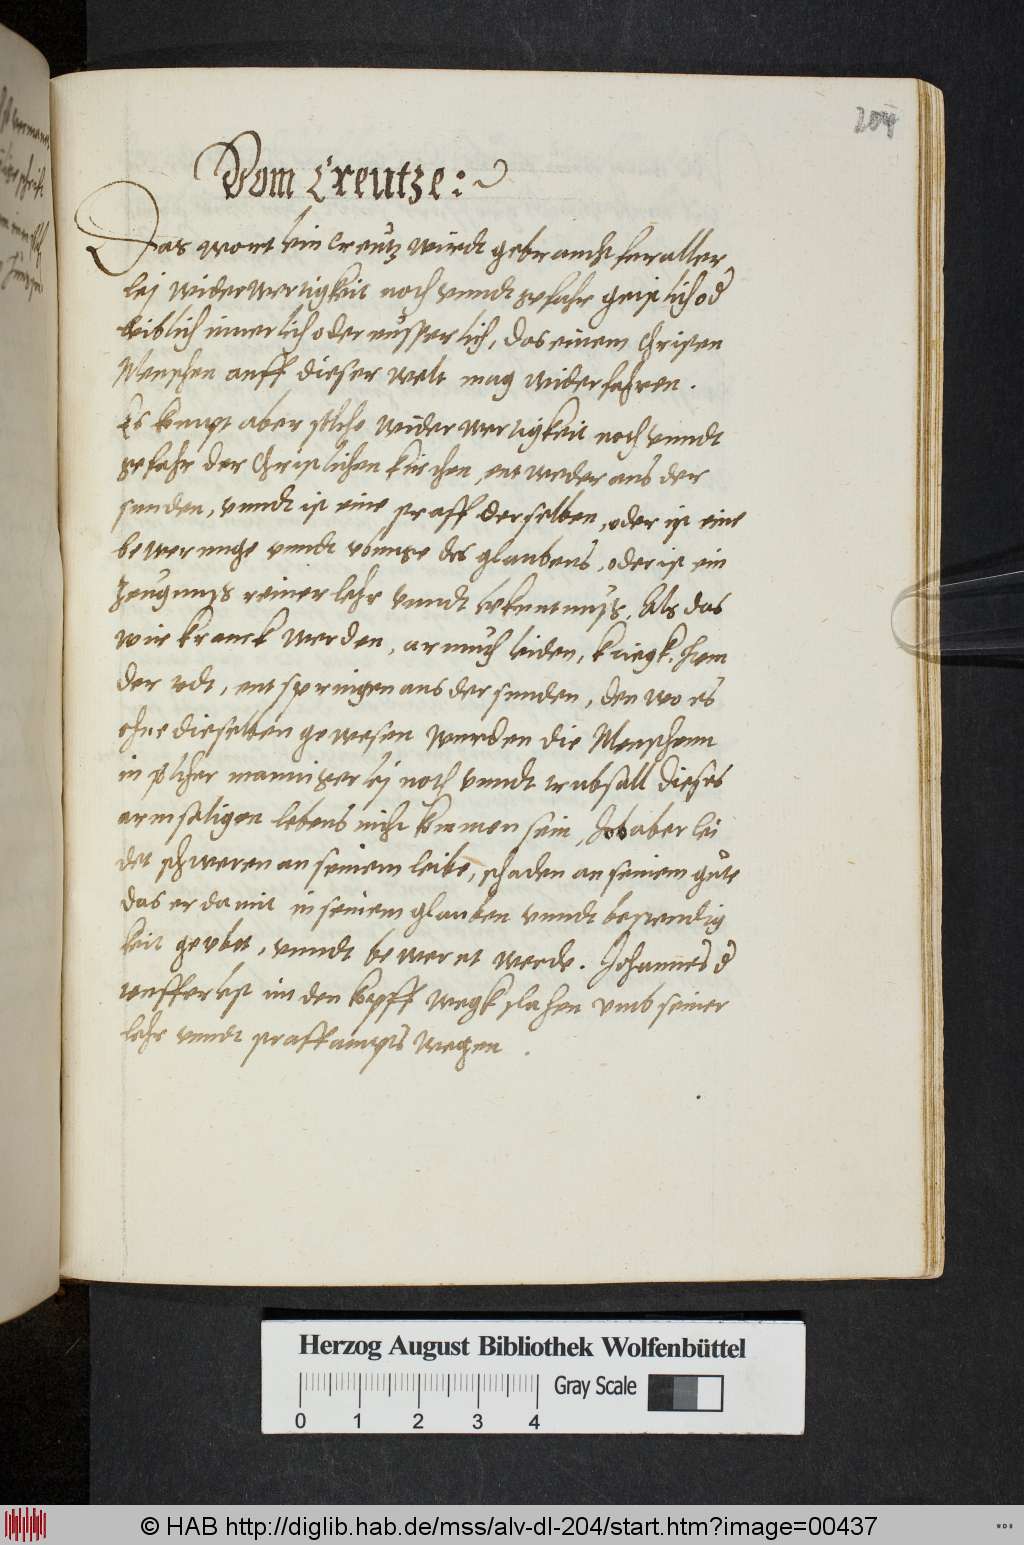 204
Vom Creutze:
Das wort ein Creutz wirdt gebraucht fur aller
lej widerwertigkeit noth vnndt gefahr geistlich od
leiblich innerlich oder eusserlich, das einem Christen
Menschen auff dieser welt mag widerfahren.
Es kompt aber solche widerwertigkeit noth vnndt
gefahr der Christlichen Kirchen, entweder aus der
sunden, vnndt ist eine straff derselben, oder ist eine
bewerunge vnndt vbunge des glaubens, oder ist ein
Zeugnus reiner lehr vnndt bekentnus, Als das
wir kranck werden, armuth leiden, kriegk,
der todt, entspringen aus der sunden, den wo es
ohne dieselben gewesen wurden die Menschenn
in solcher mannigerlej noth vnndt trubsall dieses
armseligen lebens nicht kommen sein, Job aber lei
det schweren an seinem leibe, schaden an seinem gute
das er damit in seinem glauben vnndt bestendig
keit geubet, vnndt beweret werde. Johannes d
teufferlest im den kopff wegk slahen vmb seiner
lehr vnndt straffampts wegen.
Herzog August Bibliothek Wolfenbüttel
Gray Scale
0 1 2 3 4
© HAB http://diglib.hab.de/mss/alv-dl-204/start.htm?image=00437